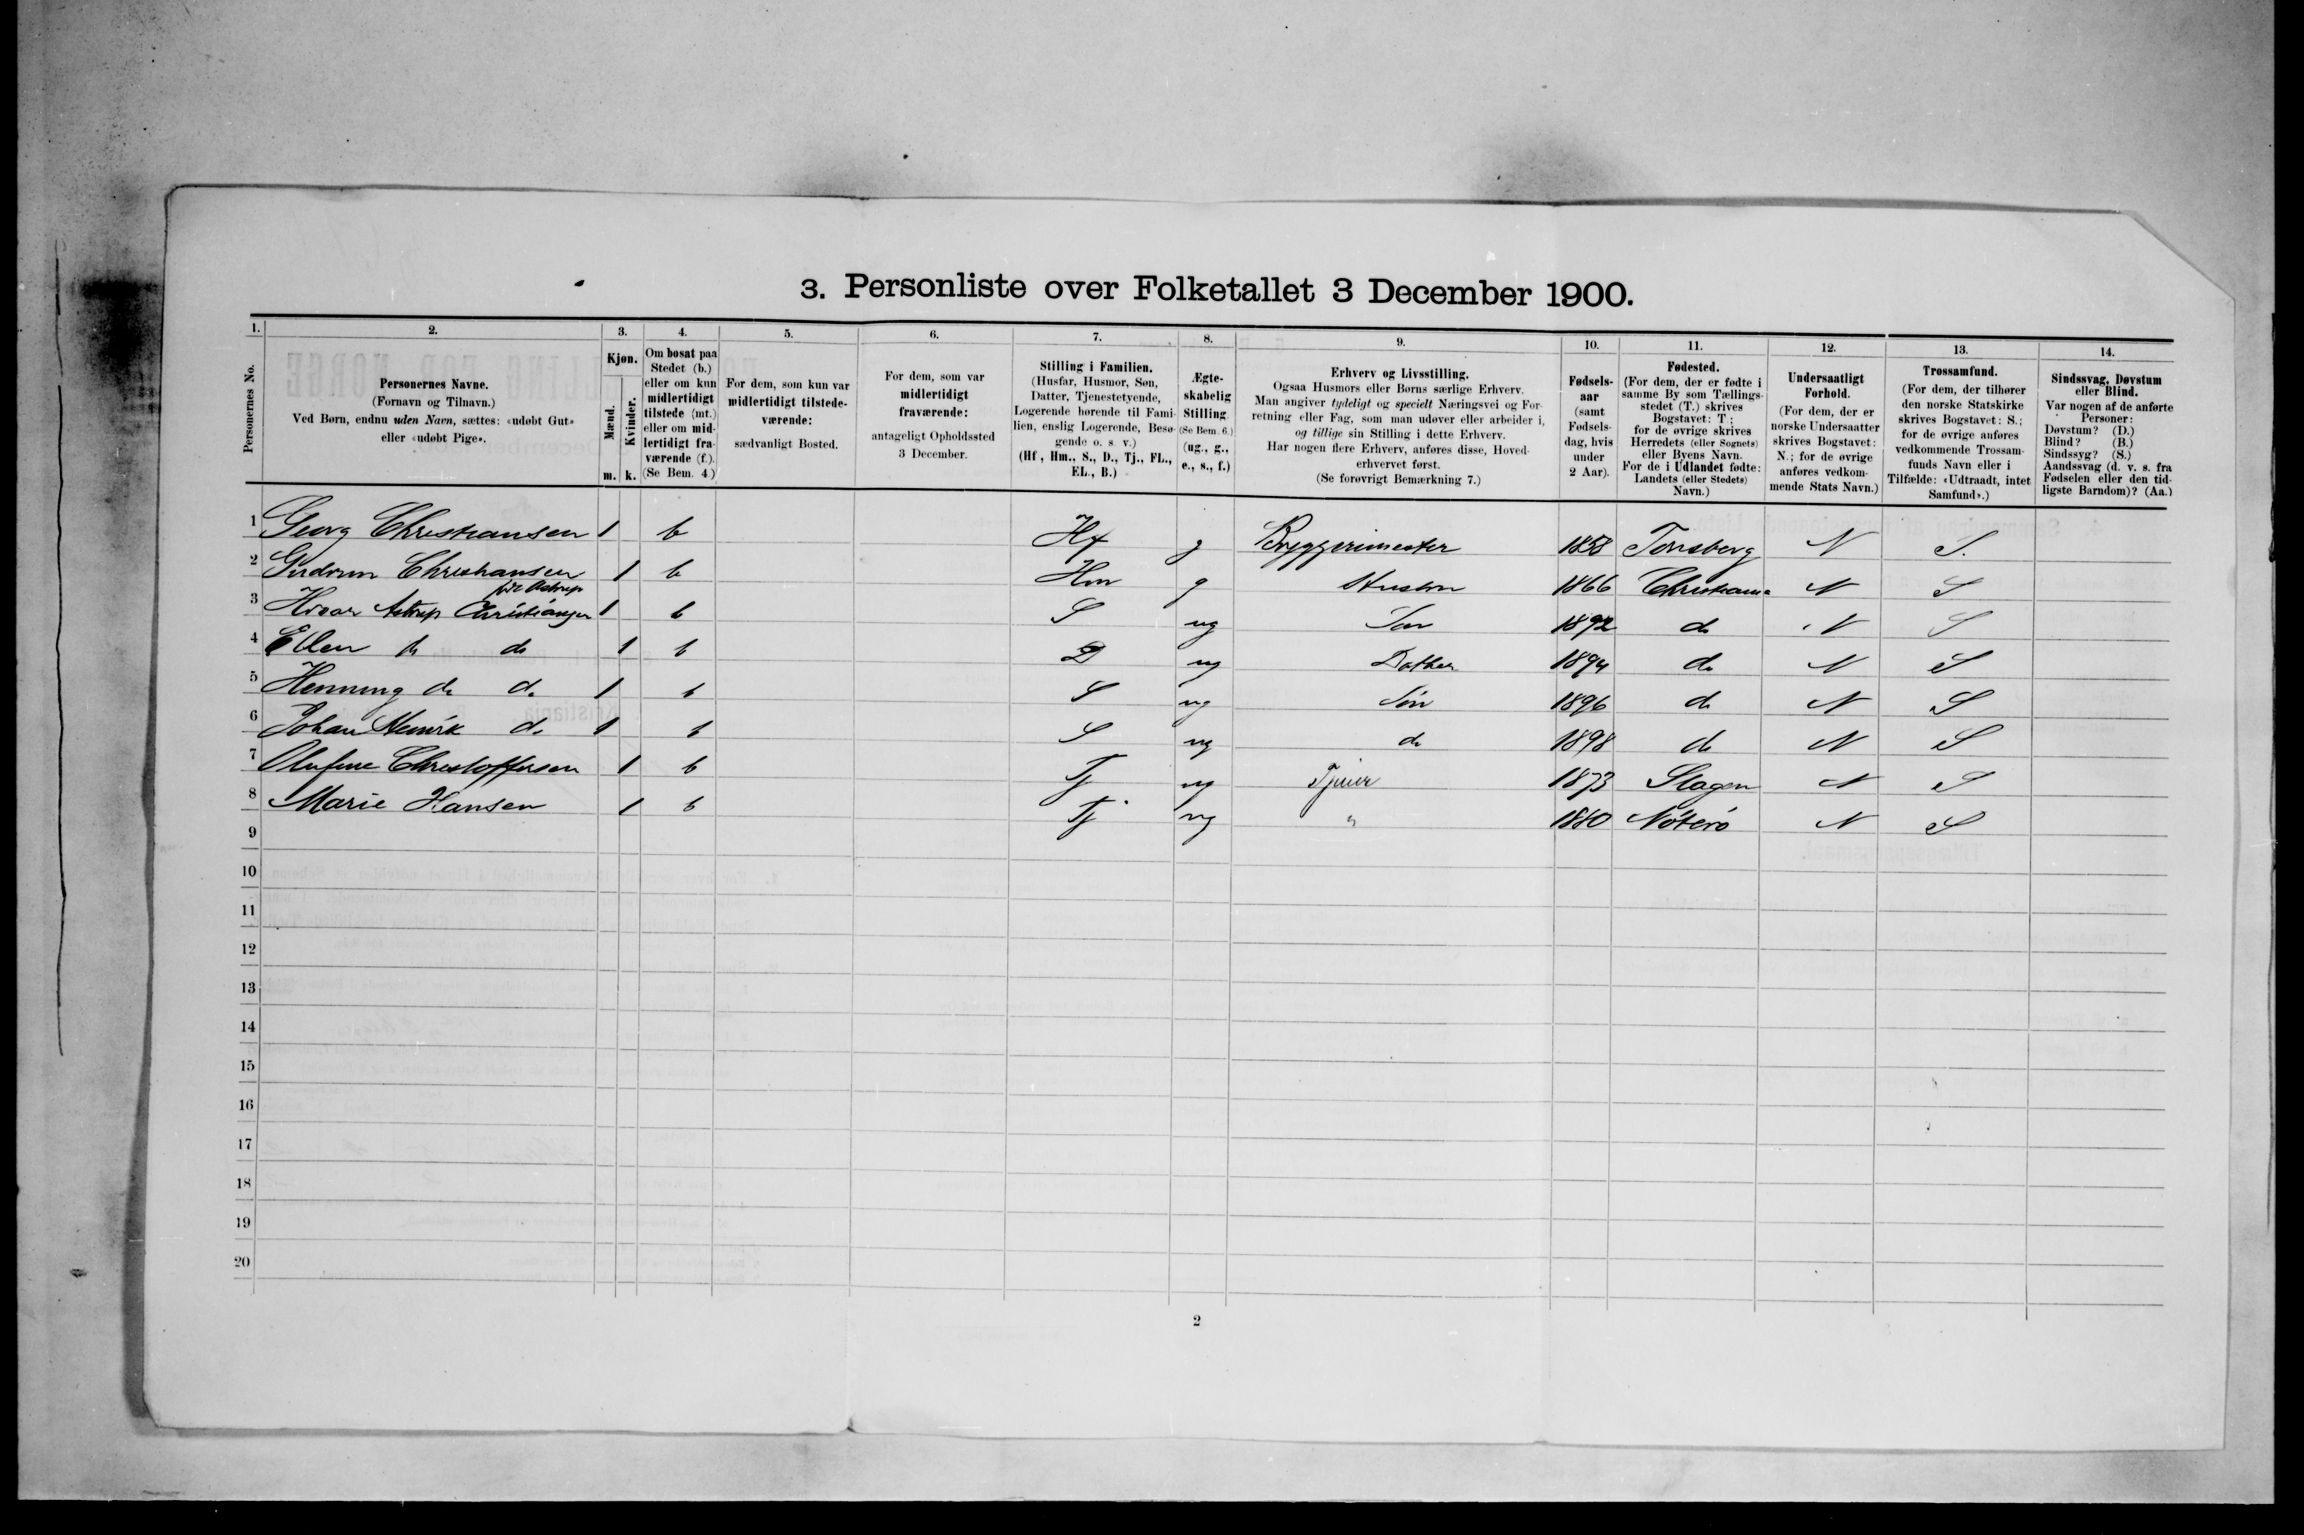 3. Personliste over Folketallet 3 December 1900.
1. 2. 3. 4. 5. 6. 7. 8. 9. 10. 11. 12. 13. 14.
Personernes No.
Personernes Navne.
(Fornavn og Tilnavn.)
Ved Børn, endnu uden Navn, sættes: «udøbt Gut»
eller «udøbt Pige».
Kjøn.
Mænd.
Kvinder.
m. k.
Om bosat paa
Stedet (b.)
eller om kun
midlertidigt
tilstede (mt.)
eller om mid-
lertidigt fra-
værende (f.).
(Se Bem. 4.)
For dem, som kun var
midlertidigt tilstede-
værende:
sædvanligt Bosted.
For dem, som var
midlertidigt
fraværende:
antageligt Opholdssted
3 December.
Stilling i Familien.
(Husfar, Husmor, Søn,
Datter, Tjenestetyende,
Logerende hørende til Fami-
lien, enslig Logerende, Besø-
gende o. s. v.)
(Hf, Hm., S., D., Tj., FL.,
EL., B.)
Ægte-
skabelig
Stilling.
(Se Bem. 6.)
(ug., g.,
e., s., f.)
Erhverv og Livsstilling.
Ogsaa Husmors eller Børns særlige Erhverv.
Man angiver tydeligt og specielt Næringsvei og For-
retning eller Fag, som man udøver eller arbeider i,
og tillige sin Stilling i dette Erhverv.
Har nogen flere Erhverv, anføres disse, Hoved-
erhvervet først.
(Se forøvrigt Bemærkning 7.)
Fødsels-
aar
(samt
Fødsels-
dag, hvis
under
2 Aar).
Fødested.
(For dem, der er fødte i
samme By som Tællings-
stedet (T.) skrives
Bogstavet: T;
for de øvrige skrives
Herredets (eller Sognets)
eller Byens Navn.
For de i Udlandet fødte:
Landets (eller Stedets)
Navn.)
Undersaatligt
Forhold.
(For dem, der er
norske Undersaatter
skrives Bogstavet:
N.; for de øvrige
anføres vedkom-
mende Stats Navn.)
Trossamfund.
(For dem, der tilhører
den norske Statskirke
skrives Bogstavet: S.;
for de øvrige anføres
vedkommende Trossam-
funds Navn eller i
Tilfælde: «Udtraadt, intet
Samfund».)
Sindssvag, Døvstum
eller Blind.
Var nogen af de anførte
Personer:
Døvstum? (D.)
Blind? (B.)
Sindssyg? (S.)
Aandssvag (d. v. s. fra
Fødselen eller den tid-
ligste Barndom)? (Aa.)
1 Georg Christiansen 1 b Hf g Bryggerimester 1858 Tønsberg N S.
2 Gudrun Christiansen 1 b Hm g Hustru 1866 Christiania N S
født Astrup
3 Hroar Astrup Christiansen 1 b S ug Søn 1892 do N S
4 Ellen do do 1 b D ug Datter 1894 do N S
5 Henning do do 1 b S ug Søn 1896 do N S
6 Johan Henrik do 1 b S ug do 1898 do N S
7 Olufine Christoffersen 1 b Tj ug 1873 Slagen N S
8 Marie Hansen 1 b Tj ug " 1880 Nøterø N S
9
10
11
12
13
14
15
16
17
18
19
20
2